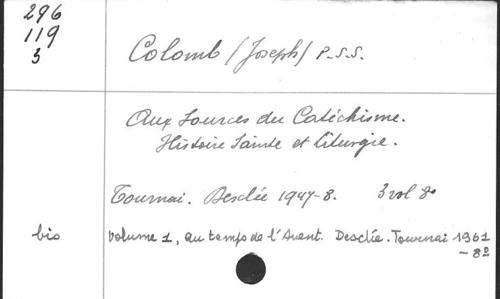 296
119
3
Colomb (Joseph) P.S.S.
Aux Sources du Catéchisme.
Histoire Sainte et Liturgie.
Tournai. Desclée 1947-8. 3 vol 8°
bis
Volume 1, au temps de l'Avent. Desclée. Tournai 1961
- 8°